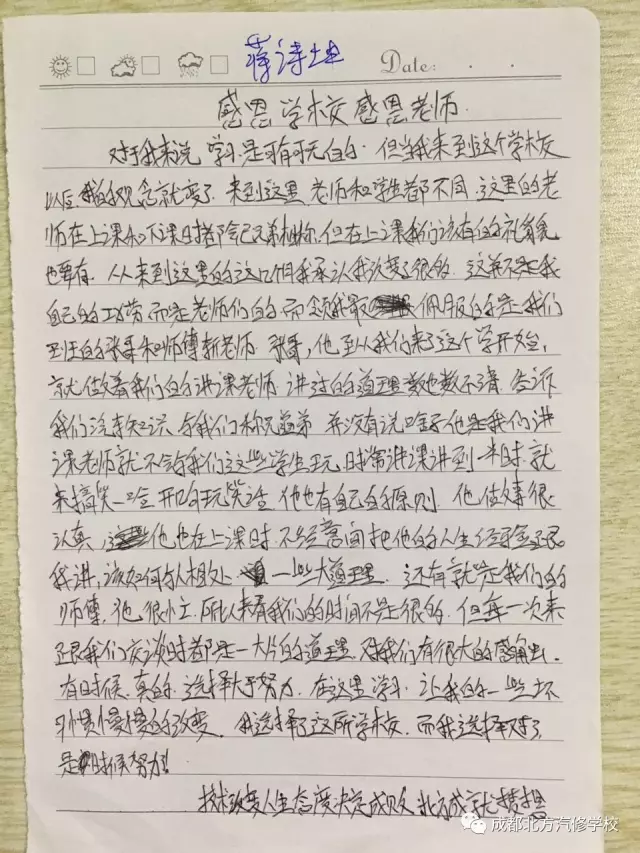 蒋诗
Date:
感恩学校 感恩老师.
对于我来说 学习是可有可无的. 但当我来到这个学校
以后 我的观念就变了. 来到这里 老师和学生都不同. 这里的老
师在上课和下课时都会已兄弟相称, 但在上课我们该有的礼貌
也要有. 从来到这里的这几个月我承认我改变了很多. 这并不是我
自己的功劳 而是老师们的 而令我最佩服的是我们
班的张哥和师傅靳老师. 张哥, 他至从我们来了这个学开始,
就做着我们的讲课老师 讲过的道理数也数不清. 告诉
我们汽车知识. 与我们称兄道弟 并没有说啥子他是我们讲
课老师就不会与我们这些学生玩. 时常讲课讲到一半时. 就
来搞笑一哈 开哈玩笑话. 他也有自己的原则. 他做事很
认真, 他也在上课时. 不经意间把他的人生经验跟
我讲, 该如何与人相处 一些大道理. 还有就是我们的
师傅. 他很忙. 所以来看我们的时间不是很多. 但每一次来
跟我们交谈时都是一大片的道理. 对我们有很大的感触.
有时候. 真的. 选择大于努力. 在这里学习. 让我的一些坏
习惯慢慢的改变. 我选择了这所学校. 而我选择对了
是时候努力!
技术改变人生 态度决定成败 北方成就梦想
成都北方汽修学校